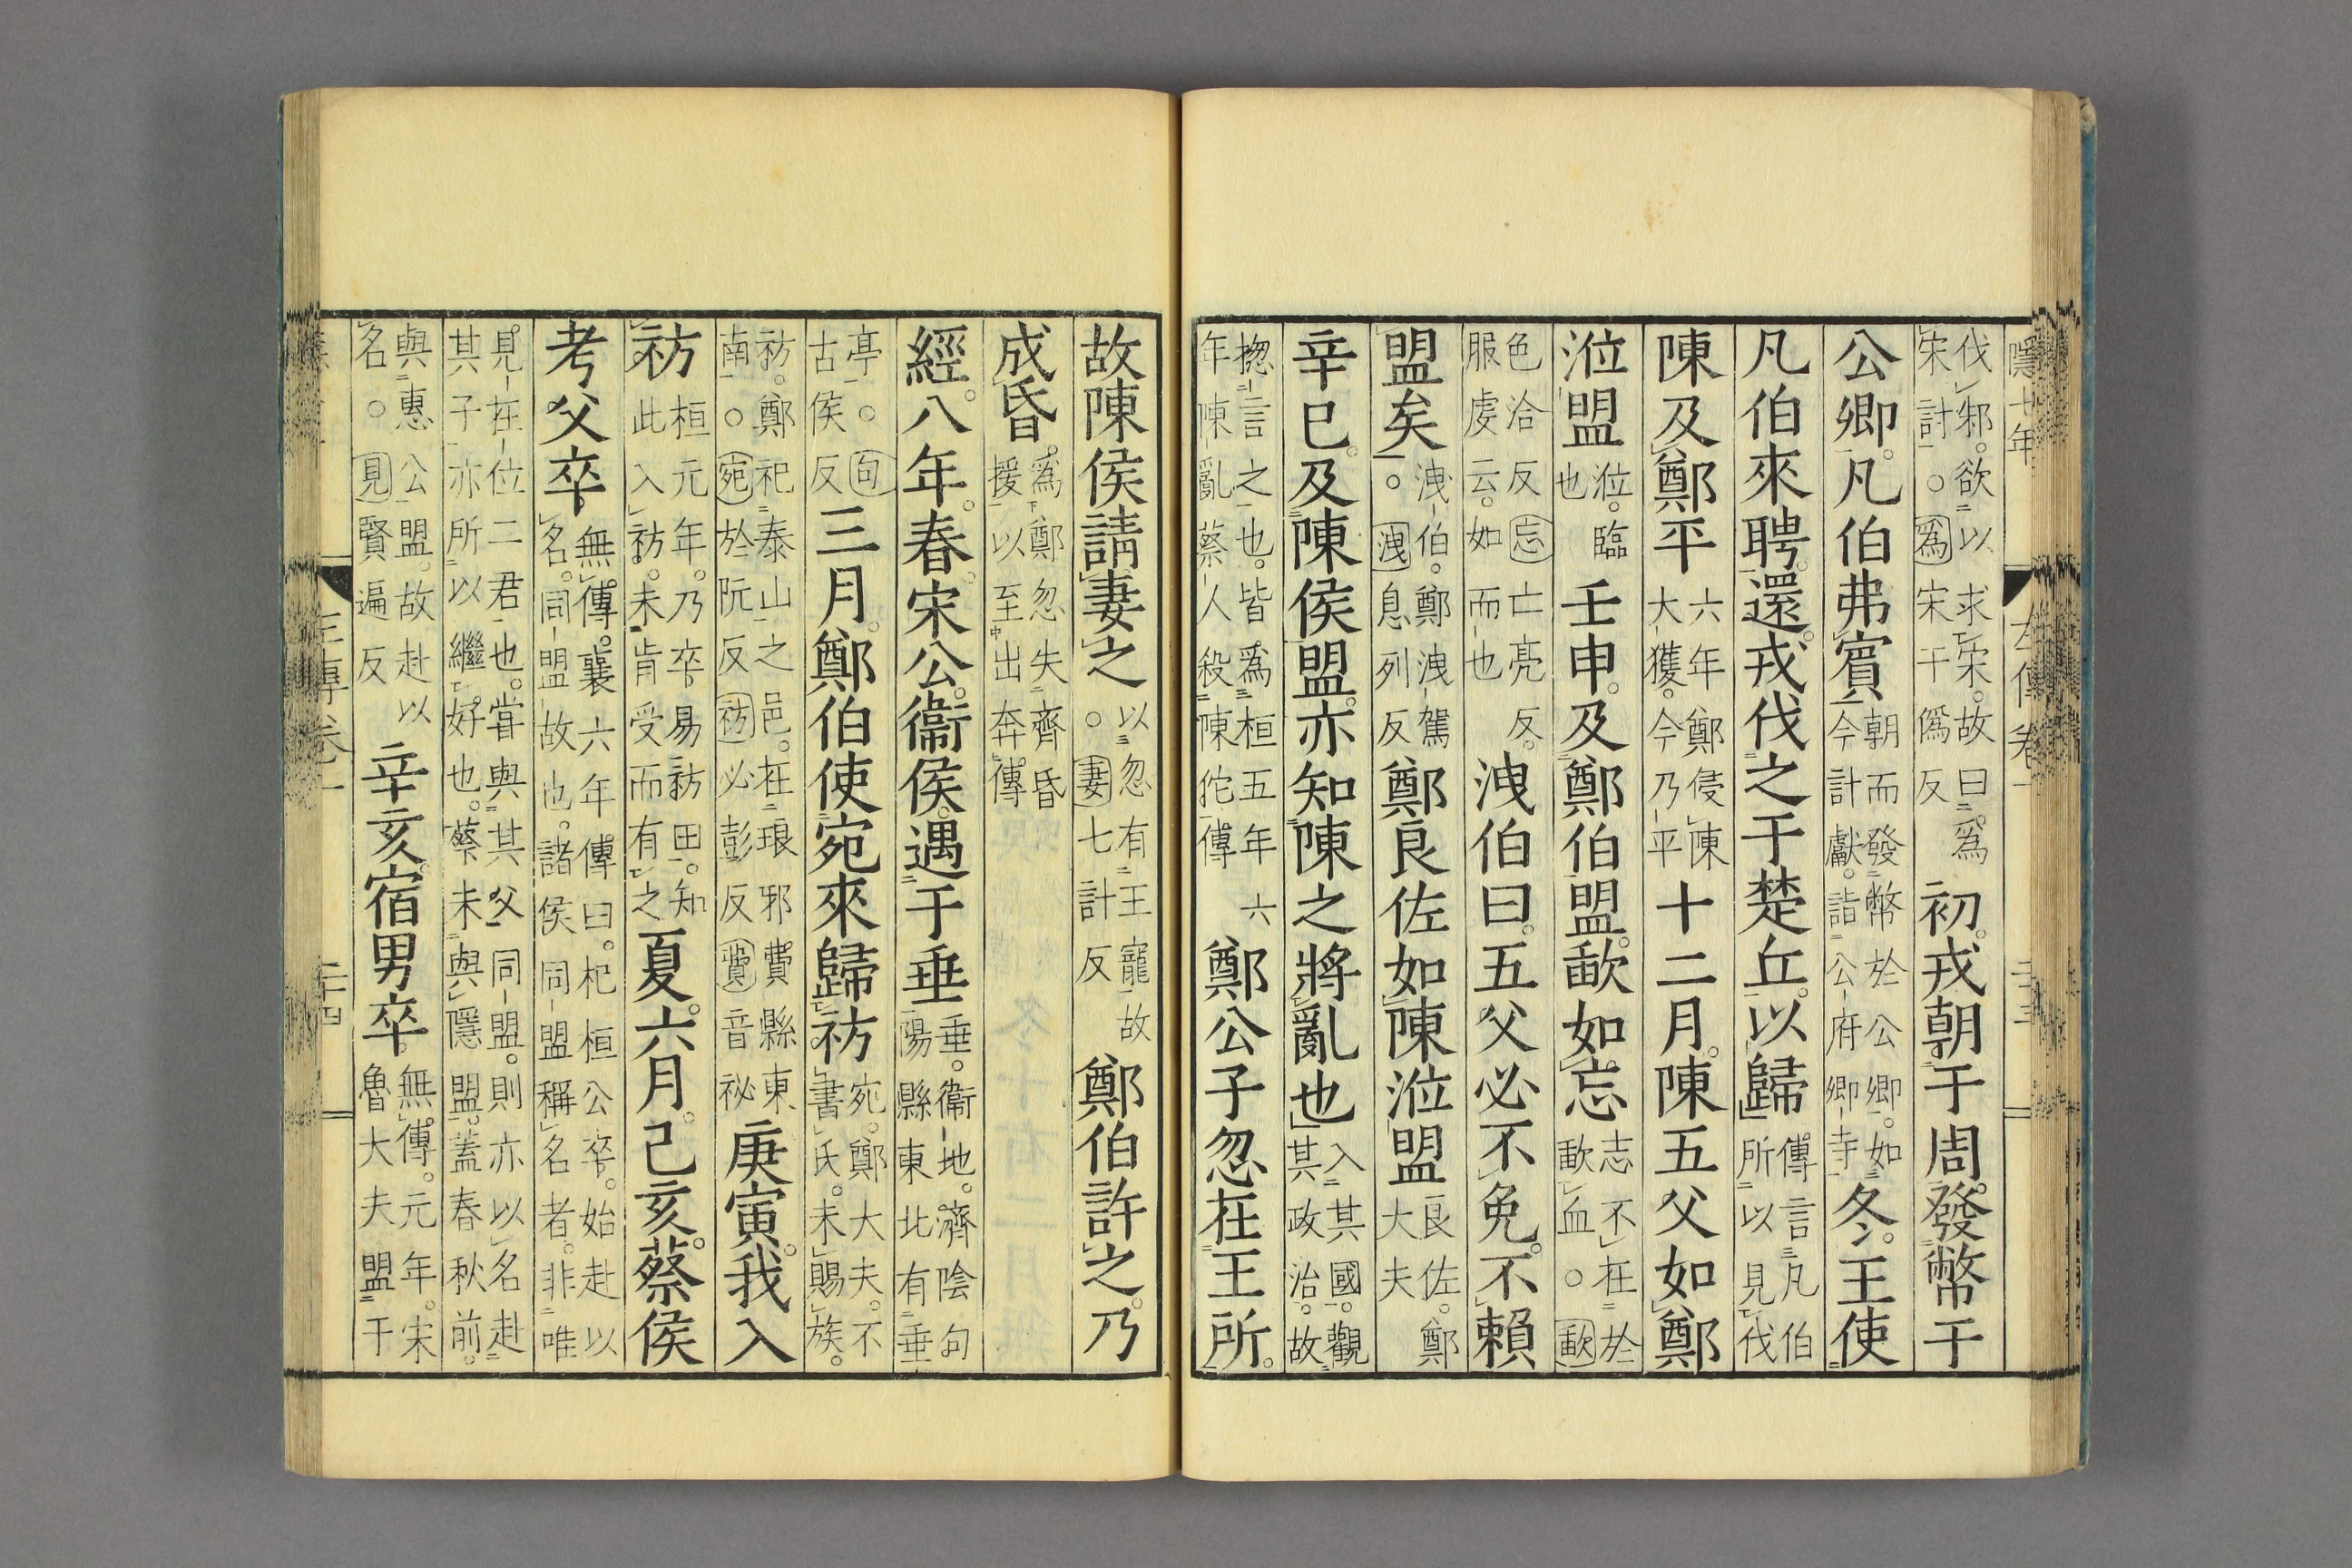 隱七年 左傳卷一
伐邾。欲以求宋。故曰爲宋討○爲宋于僞反初。戎朝于周。發幣于
公卿。凡伯弗賓朝而發幣於公卿。如今計獻。詣公府卿寺冬。王使
凡伯來聘。還。戎伐之于楚丘。以歸傳言凡伯所以見伐
陳及鄭平六年鄭侵陳大獲。今乃平十二月。陳五父如鄭
涖盟涖。臨也壬申。及鄭伯盟。歃如忘志不在於歃血○歃
色洽反忘亡亮反。服虔云。如而也洩伯曰。五父必不免。不賴
盟矣洩伯。鄭洩駕○洩息列反鄭良佐如陳涖盟良佐。鄭大夫
辛巳。及陳侯盟。亦知陳之將亂也入其國。觀其政治。故
揔言之也。皆爲桓五年六年陳亂蔡人殺陳佗傳鄭公子忽在王所。
故陳侯請妻之以忽有王寵故○妻七計反鄭伯許之。乃
成昏。爲鄭忽失齊昏援以至出奔傳
經。八年。春。宋公。衞侯。遇于垂垂。衞地。濟陰句陽縣東北有垂
亭○句古侯反三月。鄭伯使宛來歸祊。宛。鄭大夫。不書氏。未賜族。
祊。鄭祀泰山之邑。在琅邪費縣東南○宛於阮反祊必彭反費音祕庚寅。我入
祊桓元年。乃卒易祊田。知此入祊。未肯受而有之夏。六月。己亥。蔡侯
考父卒無傳。襄六年傳曰。杞桓公卒。始赴以名。同盟故也。諸侯同盟稱名者。非唯
見在位二君也。甞與其父同盟。則亦以名赴其子。亦所以繼好也。蔡未與隱盟。蓋春秋前。
與惠公盟。故赴以名○見賢遍反辛亥。宿男卒。無傳。元年。宋魯大夫盟于